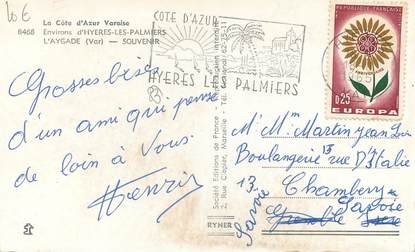 10€
La Côte d'Azur Varoise
8468 Environs d'HYERES-LES-PALMIERS
L'AYGADE (Var) — SOUVENIR
COTE D'AZUR
HYERES LES PALMIERS
REPUBLIQUE FRANÇAISE
0,25
EUROPA
Grosses bises
d'un ami qui pense
de loin à Vous.
Henri
Société Editions de France
2, Rue Caplet, Marseille - Tél.
RYNER
M. Mme Martin Jean
Boulangerie 13 rue d'Italie
13. Chambery
Savoie Savoie
Grenoble Isere